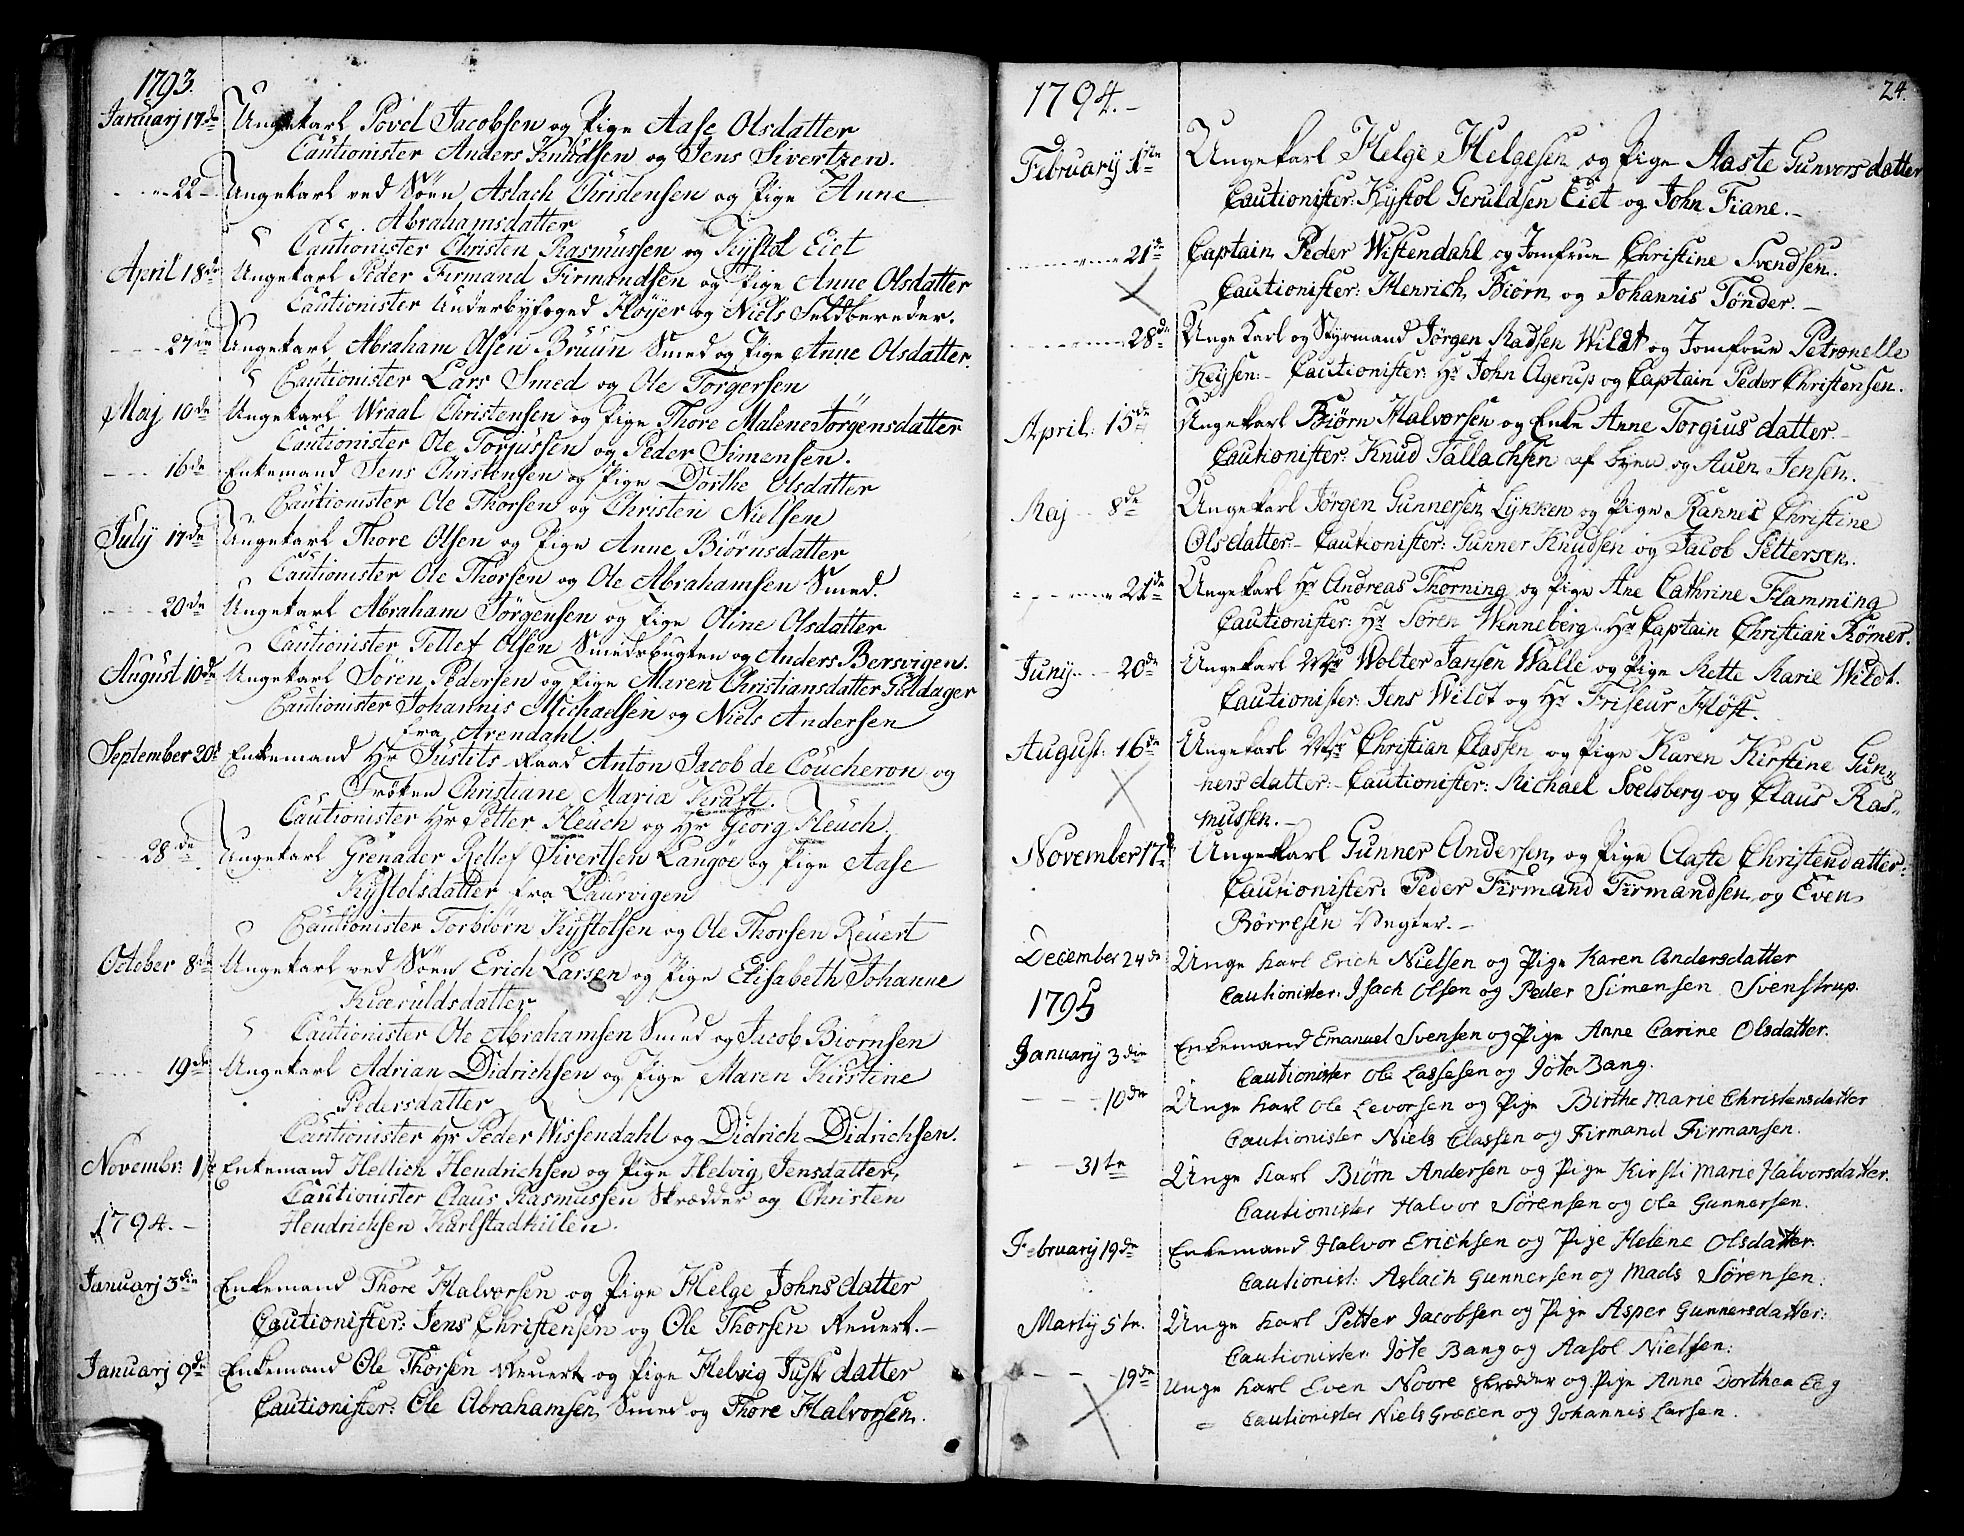 1793.
Januarj 17de Ungekarl Povel Jacobsen og Pige Aase Olsdatter
Cautionister Anders Knudsen og Jens Sivertzen.
22 - Ungekarl ved Söen Aslach Christensen og Pige Anne
Abrahamsdatter
Cautionister Christen Rasmussen og Kistol Eiet
April 18de Ungekarl Peder Firmand Firmandsen og Pige Anne Olsdatter
Cautionister Underbyfoged Höyer og Niels Feldbereder.
27de Ungekarl Abraham Olsen Bruun Smed og Pige Anne Olsdatter.
Cautionister Lars Smed og Ole Torgersen
Maj 10de Ungekarl Wraal Christensen og Pige Thore Malene Jörgensdatter
Cautionister Ole Torjussen og Peder Simensen.
16de Enkemand Jens Christensen og Pige Dorthe Olsdatter
Cautionister Ole Thorsen og Christen Nielsen
July 17de Ungekarl Thore Olsen og Pige Anne Biörnsdatter
Cautionister Ole Thorsen og Ole Abrahamsen Smed.
20de Ungekarl Abraham Jörgensen og Pige Oline Olsdatter
Cautionister Tellef Olsen Smedsbugten og Anders Bersvigen.
August 10de Ungekarl Sören Pedersen og Pige Maren Christiansdatter Guldager
Cautionister Johannis Michaelsen og Niels Andersen
fra Arendahl
September 20d Enkemand Hr Justits-Raad Anton Jacob de Coucheron og
Fröken Christiane Maria Kraft.
Cautionister Hr Petter Heuch og Hr Georg Heuch.
28de Ungekarl Grenader Rellef Sivertsen Langöe og Pige Aase
Kistolsdatter fra Laurvigen
Cautionister Torbiörn Kistolsen og Ole Thorsen Revert
October 8de Ungekarl ved Söen Erich Larsen og Pige Elisabeth Johanne
Kiæruldsdatter
Cautionister Ole Abrahamsen Smed og Jacob Biörnsen
19de Ungekarl Adrian Didrichsen og Pige Maren Kirstine
Pedersdatter
Cautionister Hr Peder Wissendahl og Didrich Didrichsen.
Novembr: 1te Enkemand Hellich Hendrichsen og Pige Helvig Jensdatter,
Cautionister Claus Rasmussen Skrædder og Christen
Hendrichsen Karlstadkiilen.
1794. -
Januarj 3die Enkemand Thore Halvorsen og Pige Helge Johnsdatter
Cautionister: Jens Christensen og Ole Thorsen Revert. -
Januarj 9de Enkemand Ole Thorsen Revert og Pige Helvig Justsdatter
Cautionister: Ole Abrahamsen Smed og Thore Halvorsen.
24.
1794. -
February 1ste Ungekarl Helge Helgesen og Pige Aaste Gunvorsdatter
Cautionister: Kistol Geruldsen Eiet og John Fiane. -
21de Captain Peder Wistendahl og Jomfrue Christine Svendsen.
Cautionister: Henrich Biörn og Johannis Tönder. -
28de Unge Karl og Styrmand Jörgen Madsen Wildt og Jomfrue Petronelle
Heysen: - Cautionister: Hr John Agerup og Captain Peder Christensen.
April: 15de Ungekarl Biörn Halvorsen og Enke Anne Torgiusdatter. -
Cautionister: Knud Tallachsen af byen og Auen Jensen.
Maj 8de Ungekarl Jörgen Gunnersen Lykken og Pige Hannei Christine
Olsdatter: - Cautionister: Gunner Knudsen og Jacob Pettersen.
21de Ungekarl Hr Andreas Thorning og Pige Ane Cathrine Flamming
Cautionister: Hr Sören Wenneberg Hr Captain Christian Römer.
Juny 20de Ungekarl Mr Wolter Jansen Walle og Pige Mette Marie Wildt.
Cautionister: Jens Wildt og Hr Friseur Höst.
August: 16de Ungekarl Mr Christian Classen og Pige Karen Kirstine Gun-
nersdatter: - Cautionister: Michael Soelsberg og Claus Ras-
mussen. -
November 17de Ungekarl Gunner Andersen og Pige Aaste Christendatter:
Cautionister: Peder Firmand Firmandsen og Even
Börresen Vegter. -
December 24de Unge Karl Erich Nielsen og Pige Karen Andersdatter
Cautionister: Isach Olsen og Peder Simensen Svenstrup.
1795
January 3die Enkemand Emanuel Svensen og Pige Anne Carine Olsdatter.
Cautionister Ole Lassesen og Jöte Bang.
10de Unge Karl Ole Levorsen og Pige Birthe Marie Christensdatter
Cautionister Niels Classen og Firmand Firmansen.
31te Unge Karl Biörn Andersen og Pige Kirsti Marie Halvorsdatter.
Cautionister Halvor Sörensen og Ole Gunnersen.
February 19de Enkemand Halvor Erichsen og Pige Helene Olsdatter.
Cautionist: Aslach Gunnersen og Mads Sörensen:
Marty 5te. Unge Karl Petter Jacobsen og Pige Asper Gunnersdatter:
Cautionister: Jöte Bang og Aasol Nielsen:
19de Unge Karl Even Noore Skrædder og Pige Anne Dorthea Eeg
Cautionister Niels Græen og Johannis Larsen.